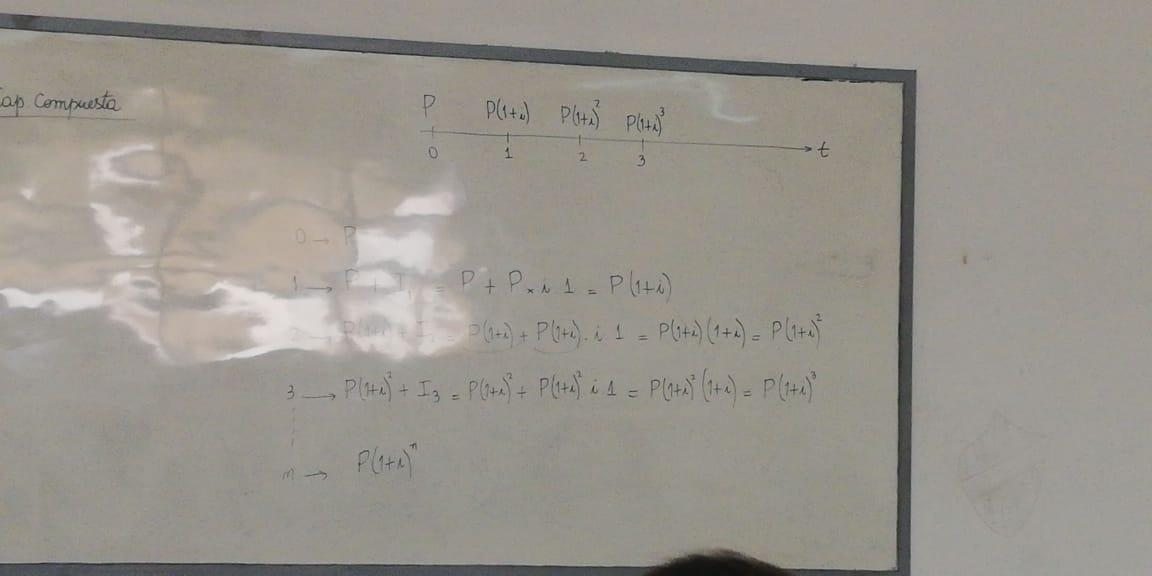 Cap Compuesta
P P(1+i) P(1+i)² P(1+i)³
0 1 2 3 t
0 → P
1 → P + I₁ = P + P × i 1 = P(1+i)
P(1+i) + I₂ = P(1+i) + P(1+i) . i 1 = P(1+i) (1+i) = P(1+i)²
3 → P(1+i)² + I₃ = P(1+i)² + P(1+i)² i 1 = P(1+i)² (1+i) = P(1+i)³
n → P(1+i)ⁿ